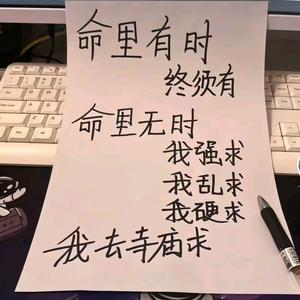 命里有时
终须有
命里无时
我强求
我乱求
我硬求
我去寺庙求